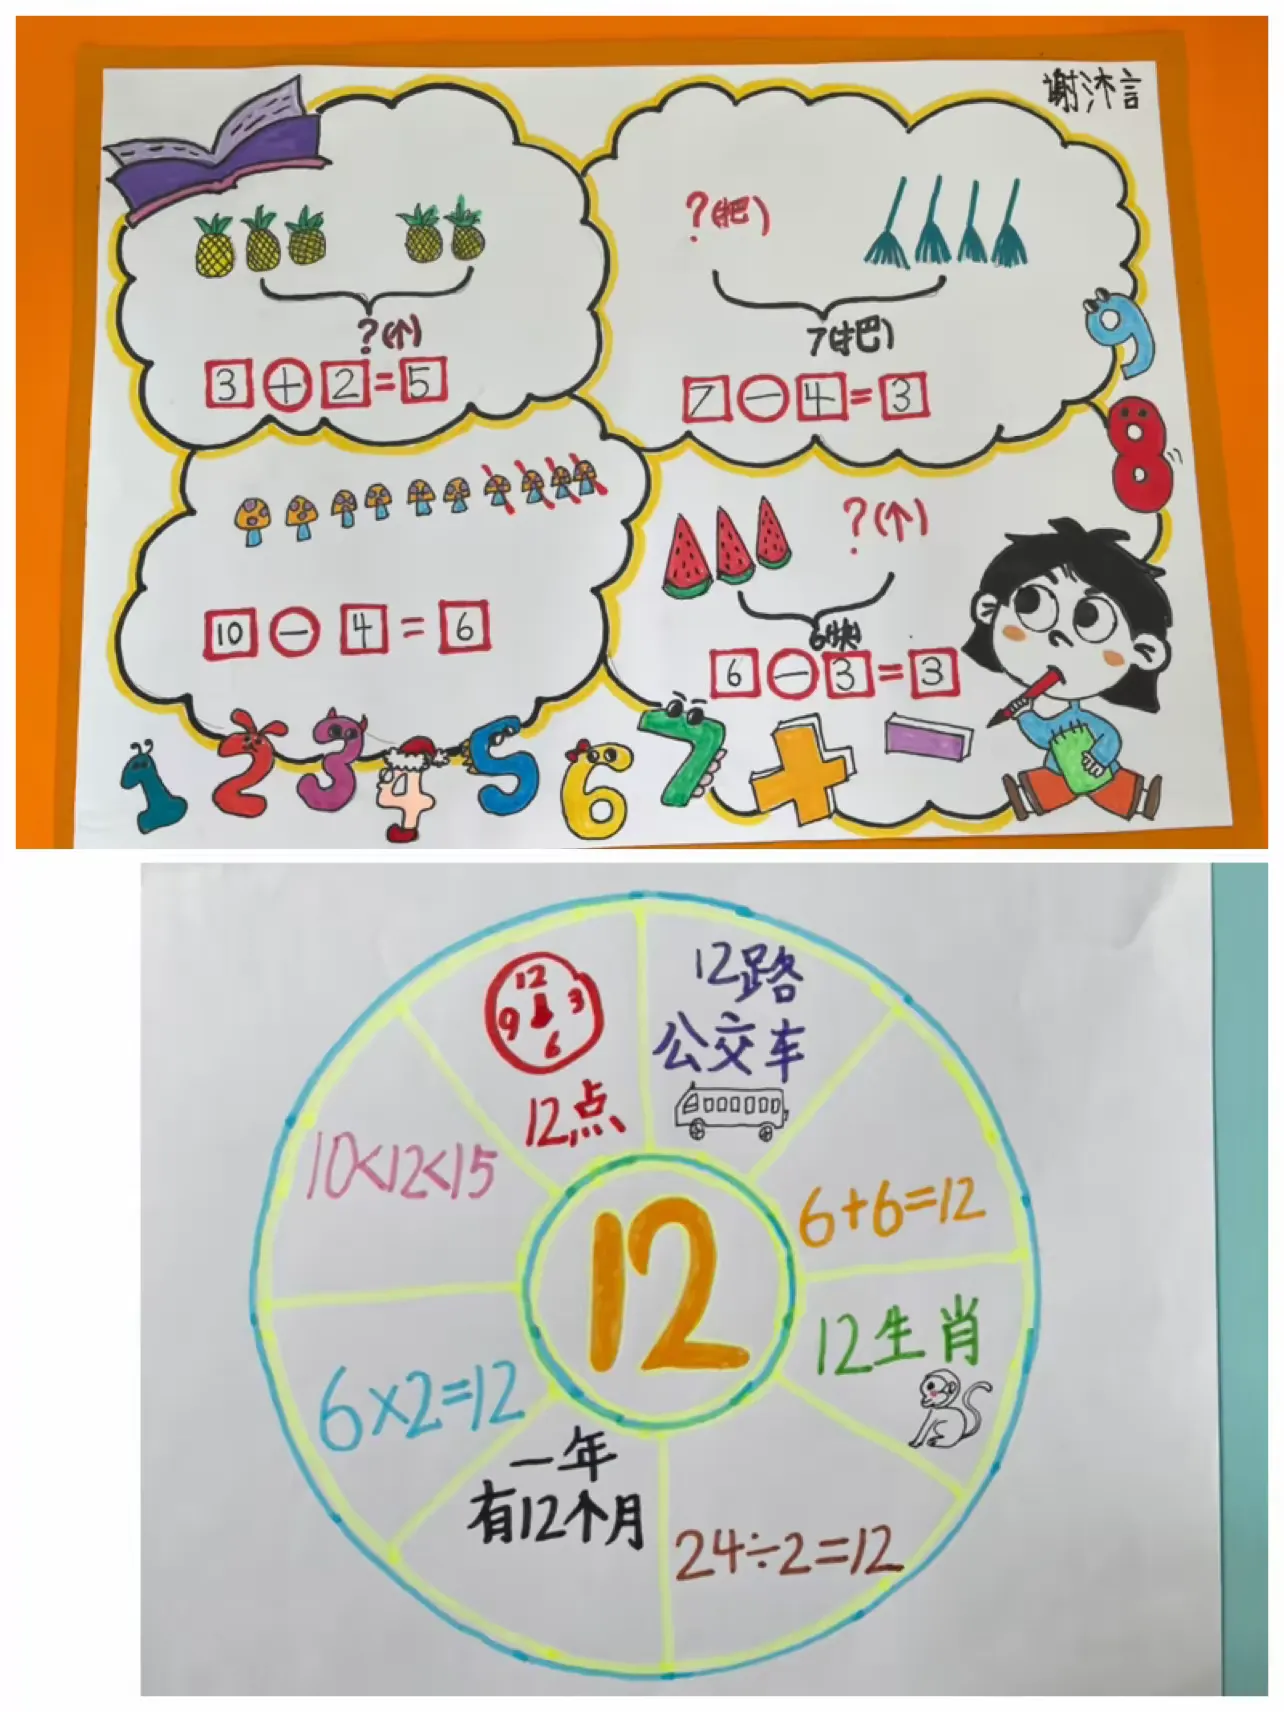 谢沐言
?(个)
3+2=5
?(把)
7(把)
7-4=3
9
8
10-4=6
?(个)
6(块)
6-3=3
1 2 3 4 5 6 7 + -
12
9 3
6
12点
12路
公交车
10<12<15
6+6=12
12
12生肖
6×2=12
一年
有12个月
24÷2=12